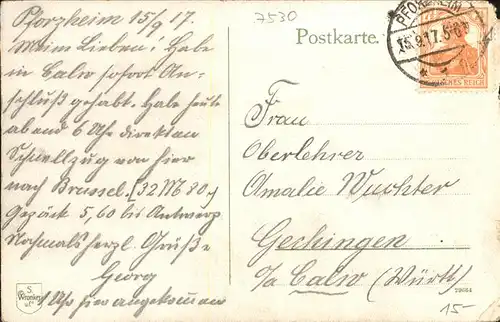 7530
Pforzheim 15/9 17.
Meine Lieben! Habe
in Calw sofort An-
schluß gehabt. Habe heute
abend 6 Uhr direkten
Schnellzug von hier
nach Brüssel. [32 M 80.]
Gepäck 5,60 bis Antwerp.
Nochmals herzl. Grüße
Georg
1 Uhr hier angekommen
Postkarte.
PFORZHEIM
15.9.17. 5-6
DEUTSCHES REICH
Frau
Oberlehrer
Amalie Wuchter
Gechingen
O/a Calw (Württ.)
15-